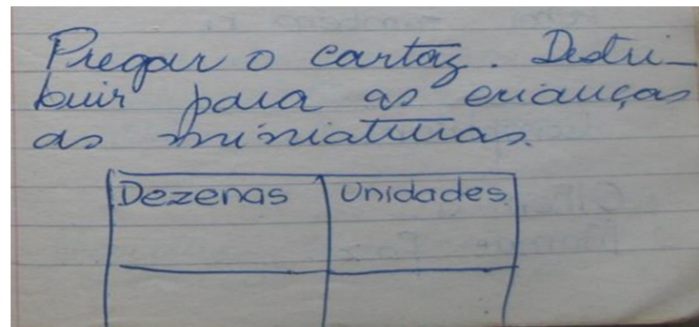 Pregar o cartaz. Distri-
buir para as crianças
as miniaturas.
Dezenas Unidades